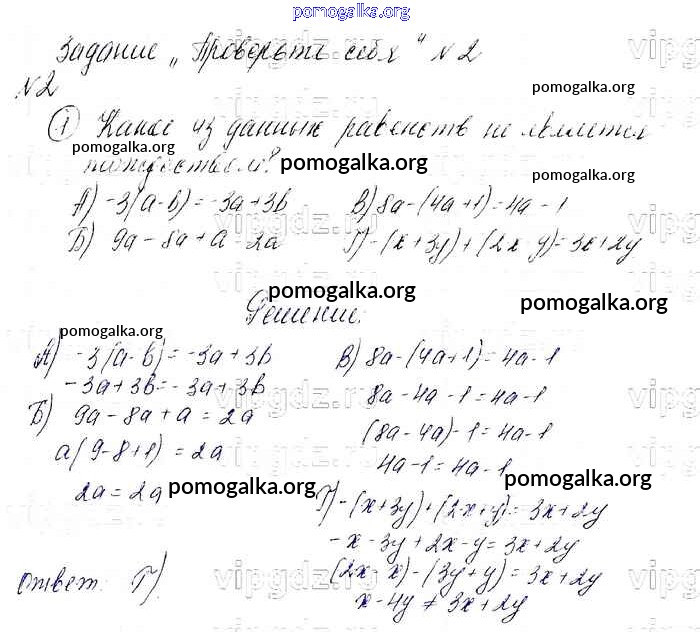 pomogalka.org
Задание "Проверьте себя" №2
№2
pomogalka.org
1 Какое из данных равенств не является
тождеством?
pomogalka.org
pomogalka.org
А) -3(a-b)=-3a+3b В) 8a-(4a+1)=4a-1
Б) 9a-8a+a=2a Г) -(x+3y)+(2x-y)=3x+2y
pomogalka.org
pomogalka.org
Решение:
pomogalka.org
А) -3(a-b)=-3a+3b
-3a+3b=-3a+3b
Б) 9a-8a+a=2a
a(9-8+1)=2a
2a=2a
pomogalka.org
В) 8a-(4a+1)=4a-1
8a-4a-1=4a-1
(8a-4a)-1=4a-1
4a-1=4a-1
pomogalka.org
Г) -(x+3y)+(2x+y)=3x+2y
-x-3y+2x-y=3x+2y
(2x-x)-(3y+y)=3x+2y
x-4y≠3x+2y
Ответ: Г).
vipgdz.ru